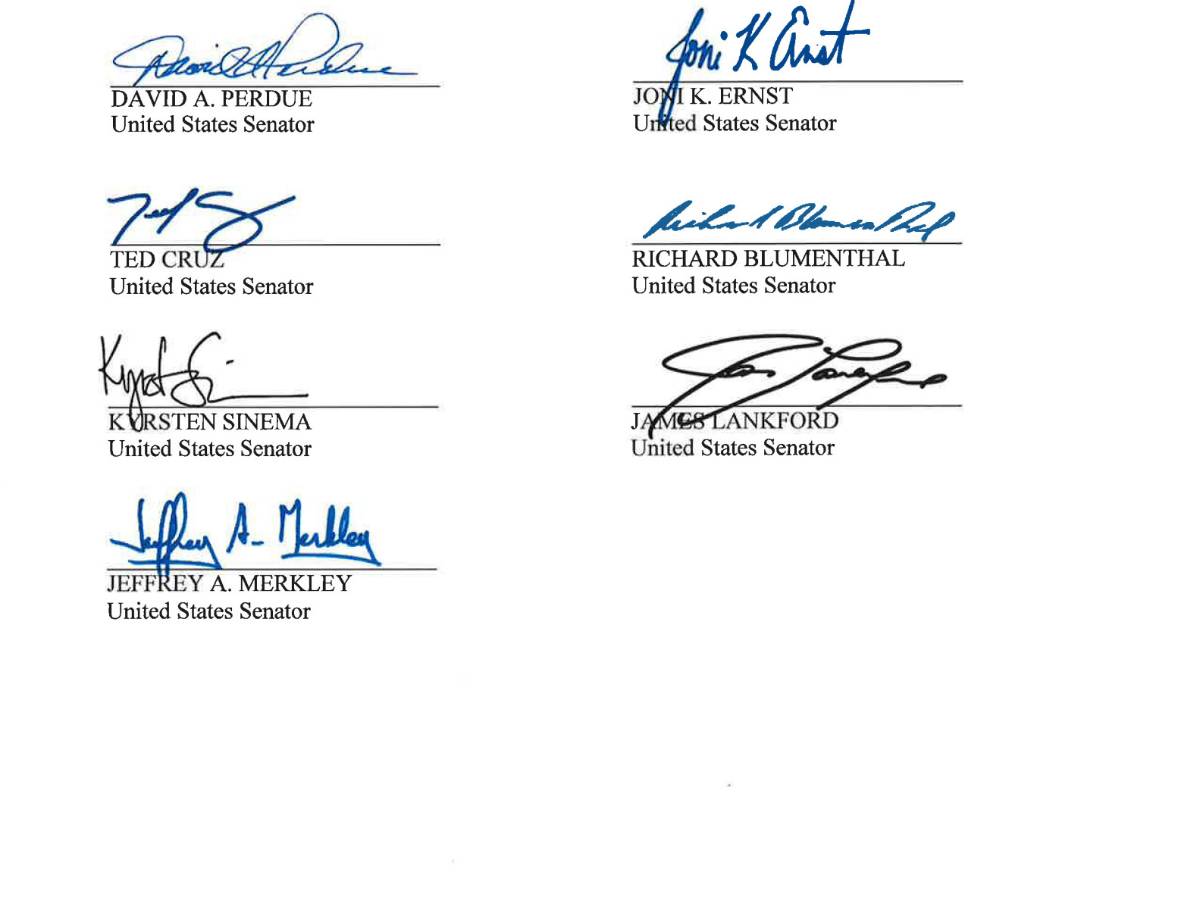 David A Perdue
Joni K Ernst
DAVID A. PERDUE
JONI K. ERNST
United States Senator
United States Senator
Ted Cruz
Richard Blumenthal
TED CRUZ
RICHARD BLUMENTHAL
United States Senator
United States Senator
Kyrsten Sinema
James Lankford
KYRSTEN SINEMA
JAMES LANKFORD
United States Senator
United States Senator
Jeffrey A. Merkley
JEFFREY A. MERKLEY
United States Senator